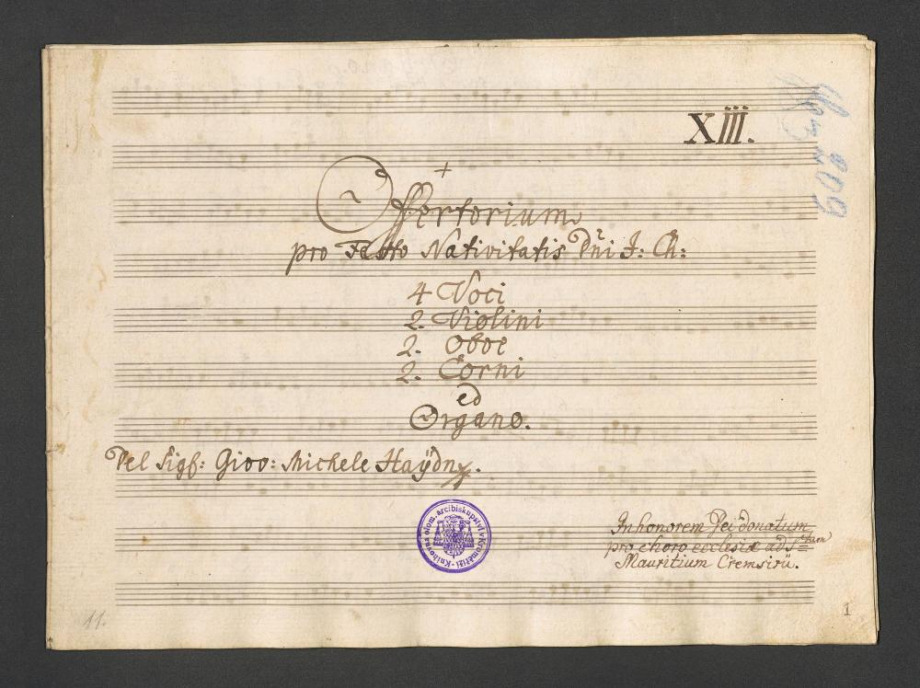 XIII.
Offertorium
pro Festo Nativitatis Dñi J: Ch:
4 Voci
2. Violini
2. Oboe
2. Corni
ed
Organo.
Del Sigf: Giov: Michele Haÿdn.
Knihovna olom. arcibiskupství v Kroměříži
In honorem Dei donatum
pro choro ecclesiæ ad S=tum
Mauritium Cremsirii.
11.
1